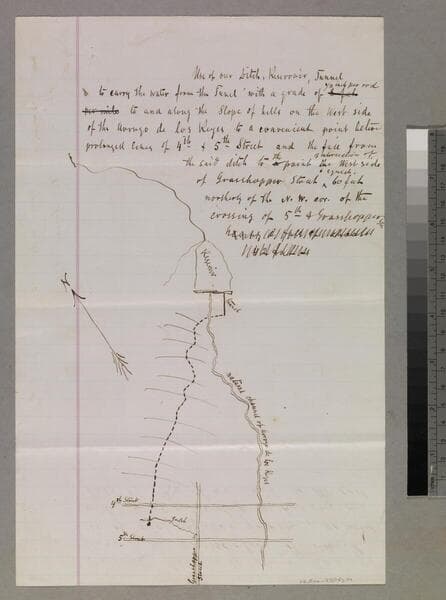 Use of our Ditch, Reservoir, Tunnel
to carry the water from the Tunel with a grade of per rod
to and along the Slope of hills on the West side
of the Arroyo de los Reyes to a convenient point between
prolonged lines of 4th & 5th Street and the fall from
the said ditch to point the West side
of Grasshopper Street 60 feet
northerly of the N.W. cor. of the
crossing of 5th & Grasshopper
Reservoir
Tunel
natural channel of Arroyo de los Reyes
4th Street
5th Street
Grasshopper
Street